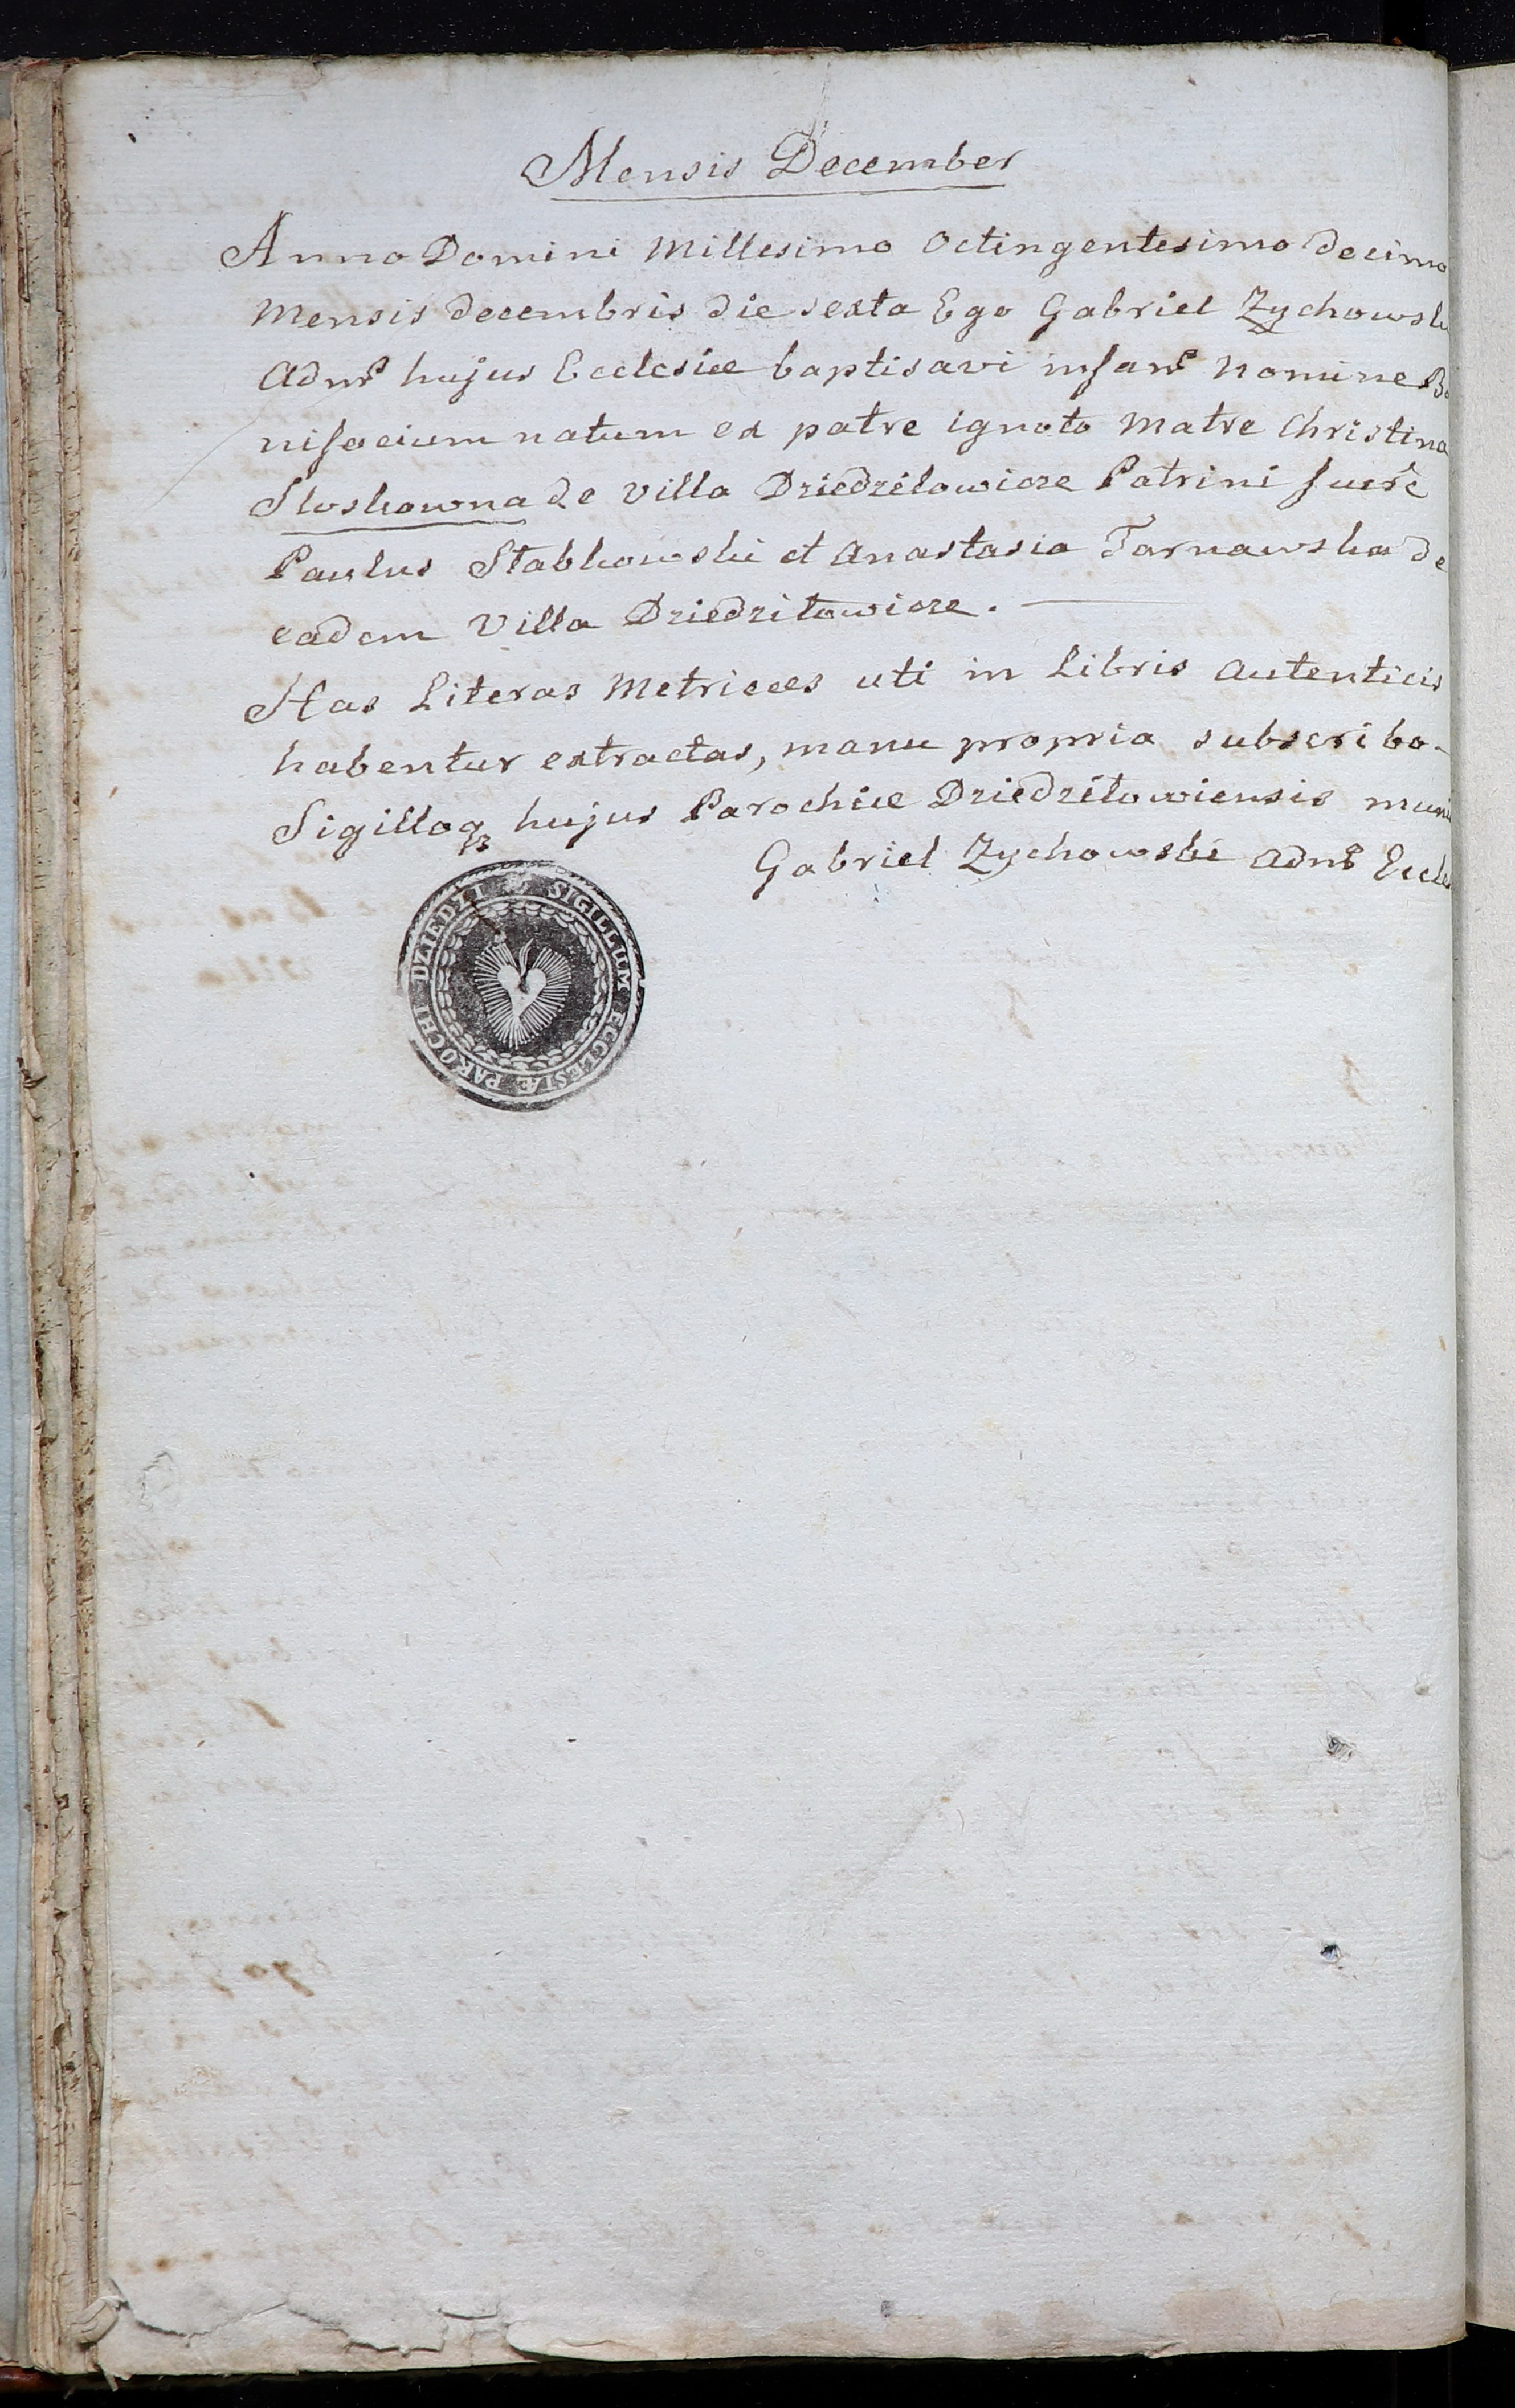 Mensis December
Anno Domini Millesimo Octingentesimo decimo
Mensis decembris die sexta Ego Gabriel Zychowski
Admr̃ hujus Ecclesiæ baptisavi infanr̃ nomine Bo
nifacium natum ex patre ignoto Matre Christina
Sloskowna de villa Dziedzilowicze Patrini fuerẽ
Paulus Stabkowski et Anastasia Tarnawska de
eadem Villa Dziedzitowicze. —
Has Literas Metrices uti in Libris Autenticis
habentur extractas, manu propria subscribo-
Sigilloqz hujus Parochiæ Dziedzitowiensis muni
Gabriel Zychowski Admr̃ Eccle
SIGILLUM ECCLESIÆ PAROCHI DZIEDZI